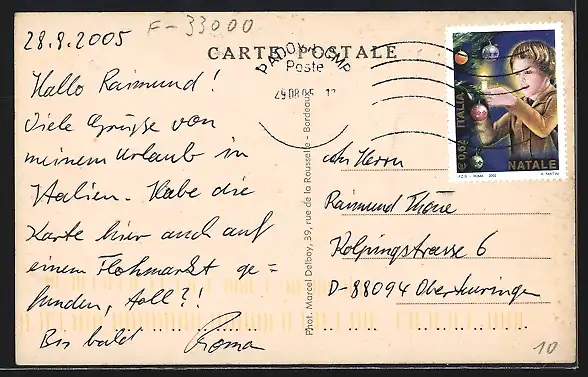 28.8.2005
F-33000
CARTE POSTALE
PADOVA CMP
Poste
29.08.05
Hallo Raimund!
Viele Grüße von
meinem Urlaub in
Italien. Habe die
Karte hier auch auf
einem Flohmarkt ge=
funden, toll?!
Bis bald
Phot. Marcel Delboy, 39, rue de la Rousselle - Bordeaux
ITALIA
NATALE
Herrn
Raimund Thöne
Kolpingstrasse 6
D-88094 Oberteuringen
10